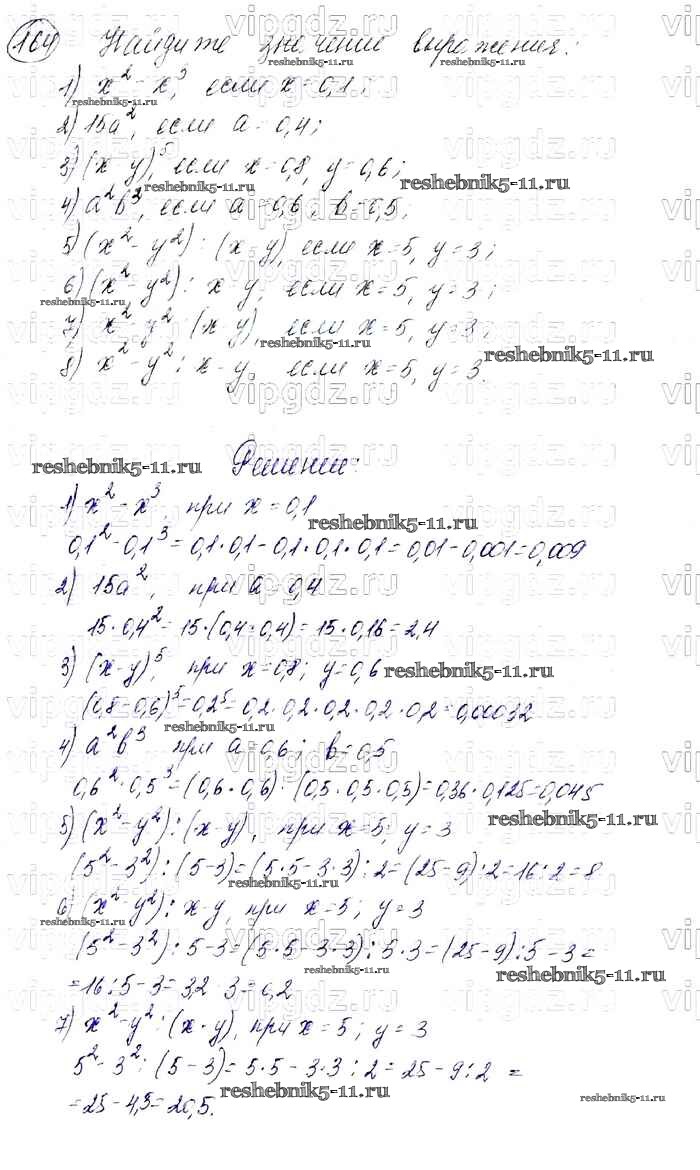 164 Найдите значение выражения:
1) x² - x³, если x = 0,1;
2) 15a², если a = 0,4;
3) (x - y)⁵, если x = 0,8, y = 0,6;
4) a²b³, если a = 0,6, b = 0,5;
5) (x² - y²) : (x - y), если x = 5, y = 3;
6) (x² - y²) : x - y, если x = 5, y = 3;
7) x² - y² : (x - y), если x = 5, y = 3;
8) x² - y² : x - y, если x = 5, y = 3.
Решение:
1) x² - x³, при x = 0,1
0,1² - 0,1³ = 0,1·0,1 - 0,1·0,1·0,1 = 0,01 - 0,001 = 0,009
2) 15a², при a = 0,4
15·0,4² = 15·(0,4·0,4) = 15·0,16 = 2,4
3) (x - y)⁵, при x = 0,8; y = 0,6
(0,8 - 0,6)⁵ = 0,2⁵ = 0,2·0,2·0,2·0,2·0,2 = 0,00032
4) a²b³ при a = 0,6; b = 0,5
0,6²·0,5³ = (0,6·0,6)·(0,5·0,5·0,5) = 0,36·0,125 = 0,045
5) (x² - y²) : (x - y), при x = 5; y = 3
(5² - 3²) : (5 - 3) = (5·5 - 3·3) : 2 = (25 - 9) : 2 = 16 : 2 = 8
6) (x² - y²) : x - y, при x = 5; y = 3
(5² - 3²) : 5 - 3 = (5·5 - 3·3) : 5 - 3 = (25 - 9) : 5 - 3 =
= 16 : 5 - 3 = 3,2 - 3 = 0,2
7) x² - y² : (x - y), при x = 5; y = 3
5² - 3² : (5 - 3) = 5·5 - 3·3 : 2 = 25 - 9 : 2 =
= 25 - 4,5 = 20,5.
vipgdz.ru
reshebnik5-11.ru